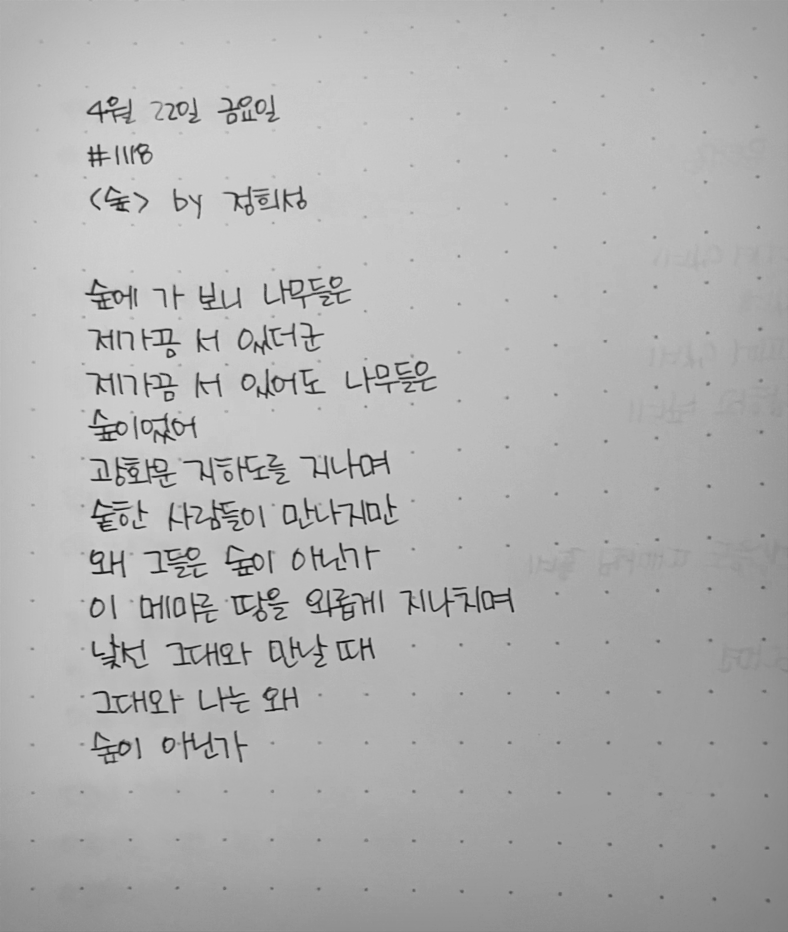 4월 22일 금요일
#1118
<숲> by 정희성
숲에 가 보니 나무들은
제가끔 서 있더군
제가끔 서 있어도 나무들은
숲이었어
광화문 지하도를 지나며
숱한 사람들이 만나지만
왜 그들은 숲이 아닌가
이 메마른 땅을 외롭게 지나치며
낯선 그대와 만날 때
그대와 나는 왜
숲이 아닌가